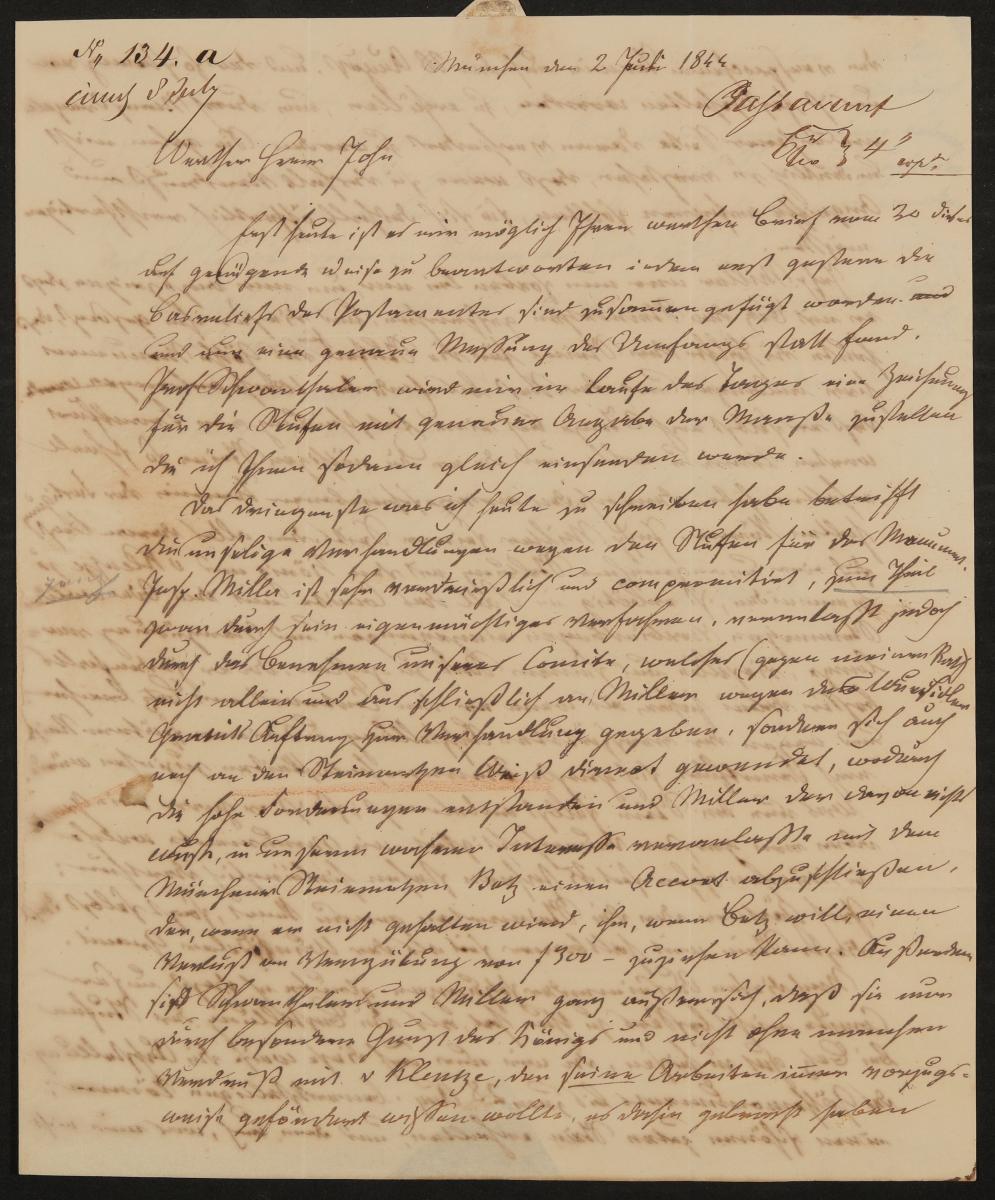 No 134. a
München den 2 Juli 1844
einges 8 July
Postament
Werther Herr John
No 3 4
Erst heute ist es mir möglich Ihren werthen Brief vom 30 dieses
auf genügende Weise zu beantworten indem erst gestern die
Basreliefs des Postamentes sind zusammengefügt worden und
und nun eine genaue Messung des Umfangs statt fand.
Prof Schwanthaler wird mir im Laufe des Tages eine Zeichnung
für die Stufen mit genauer Angabe der Maaße zustellen
die ich Ihnen sodann gleich einsenden werde.
Das dringenste was ich heute zu schreiben habe betrifft
die unselige Verhandlungen wegen den Stufen für das Monument.
Insp. Miller ist sehr verdrießlich und compromitirt, zum Theil
zwar durch sein eigenmächtiges Verfahren, veranlasst jedoch
durch das Benehmen unseres Comite, welches (gegen meinen Rath)
nicht allein und ausschließlich an Miller wegen des Wunsidler
Granits Auftrag zur Verhandlung gegeben, sondern sich auch
noch an den Steinmetzen Weiß direct gewendet, wodurch
die hohe Forderungen entstanden und Miller der davon nichts
wußte, in unserm wahren Interesse veranlaßte mit dem
Münchner Steinmetzen Betz einen Accort abzuschließen,
der, wenn er nicht gehalten wird, ihm, wenn Betz will, einen
Verlust an Vergütung von f 300 – zuziehen kann. Außerdem
sind Schwanthaler und Miller ganz außer sich, daß sie nun
durch besondere Gunst des Königs und nicht ohne manchen
Verdruß mit v Klenze, der seine Arbeiten immer vorzugs-
weise gefördert wissen wollte, es dahin gebracht haben